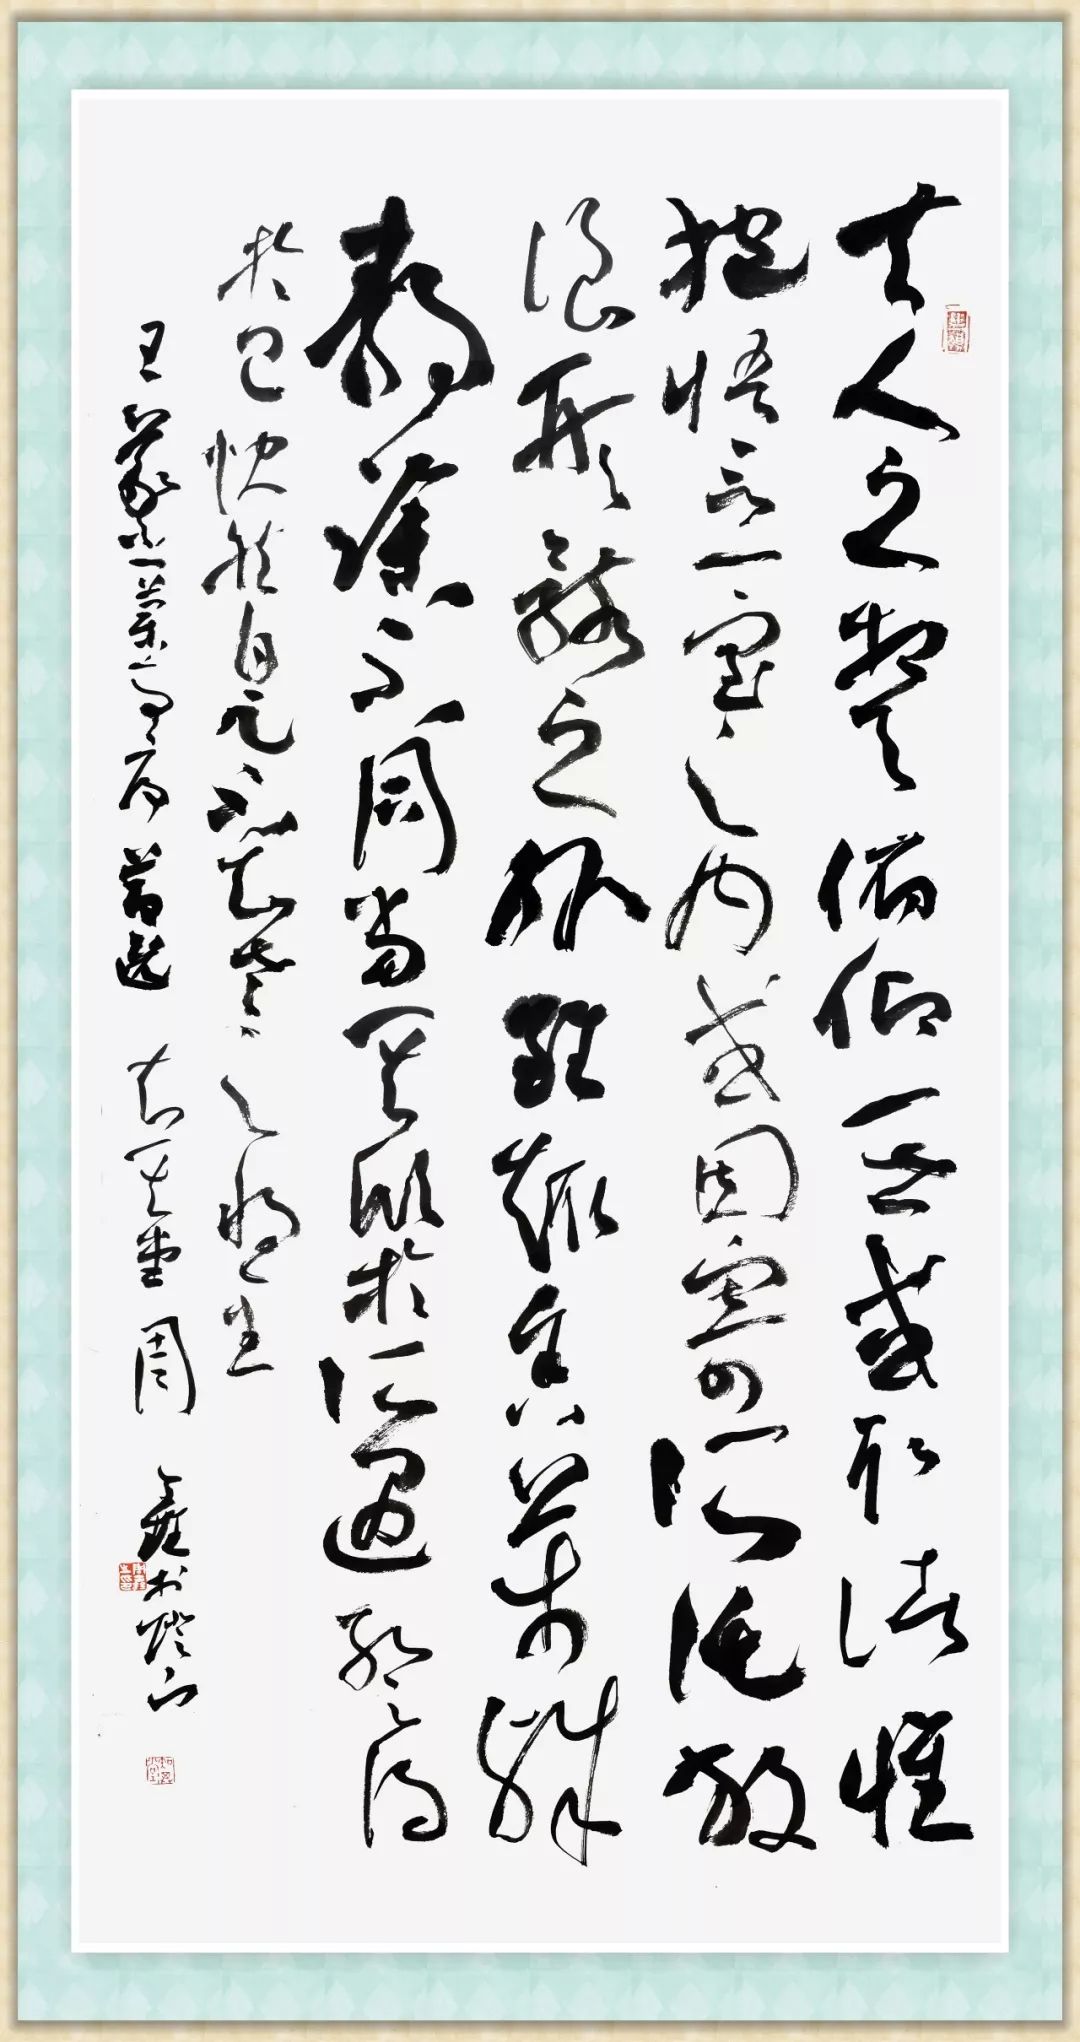 夫人之相與俯仰一世或取諸懷
抱悟言一室之內或因寄所託放
浪形骸之外雖趣舍萬殊
靜躁不同當其欣於所遇暫得
於己快然自足不知老之將至
王羲之蘭亭序節選 堂 周 書燈下